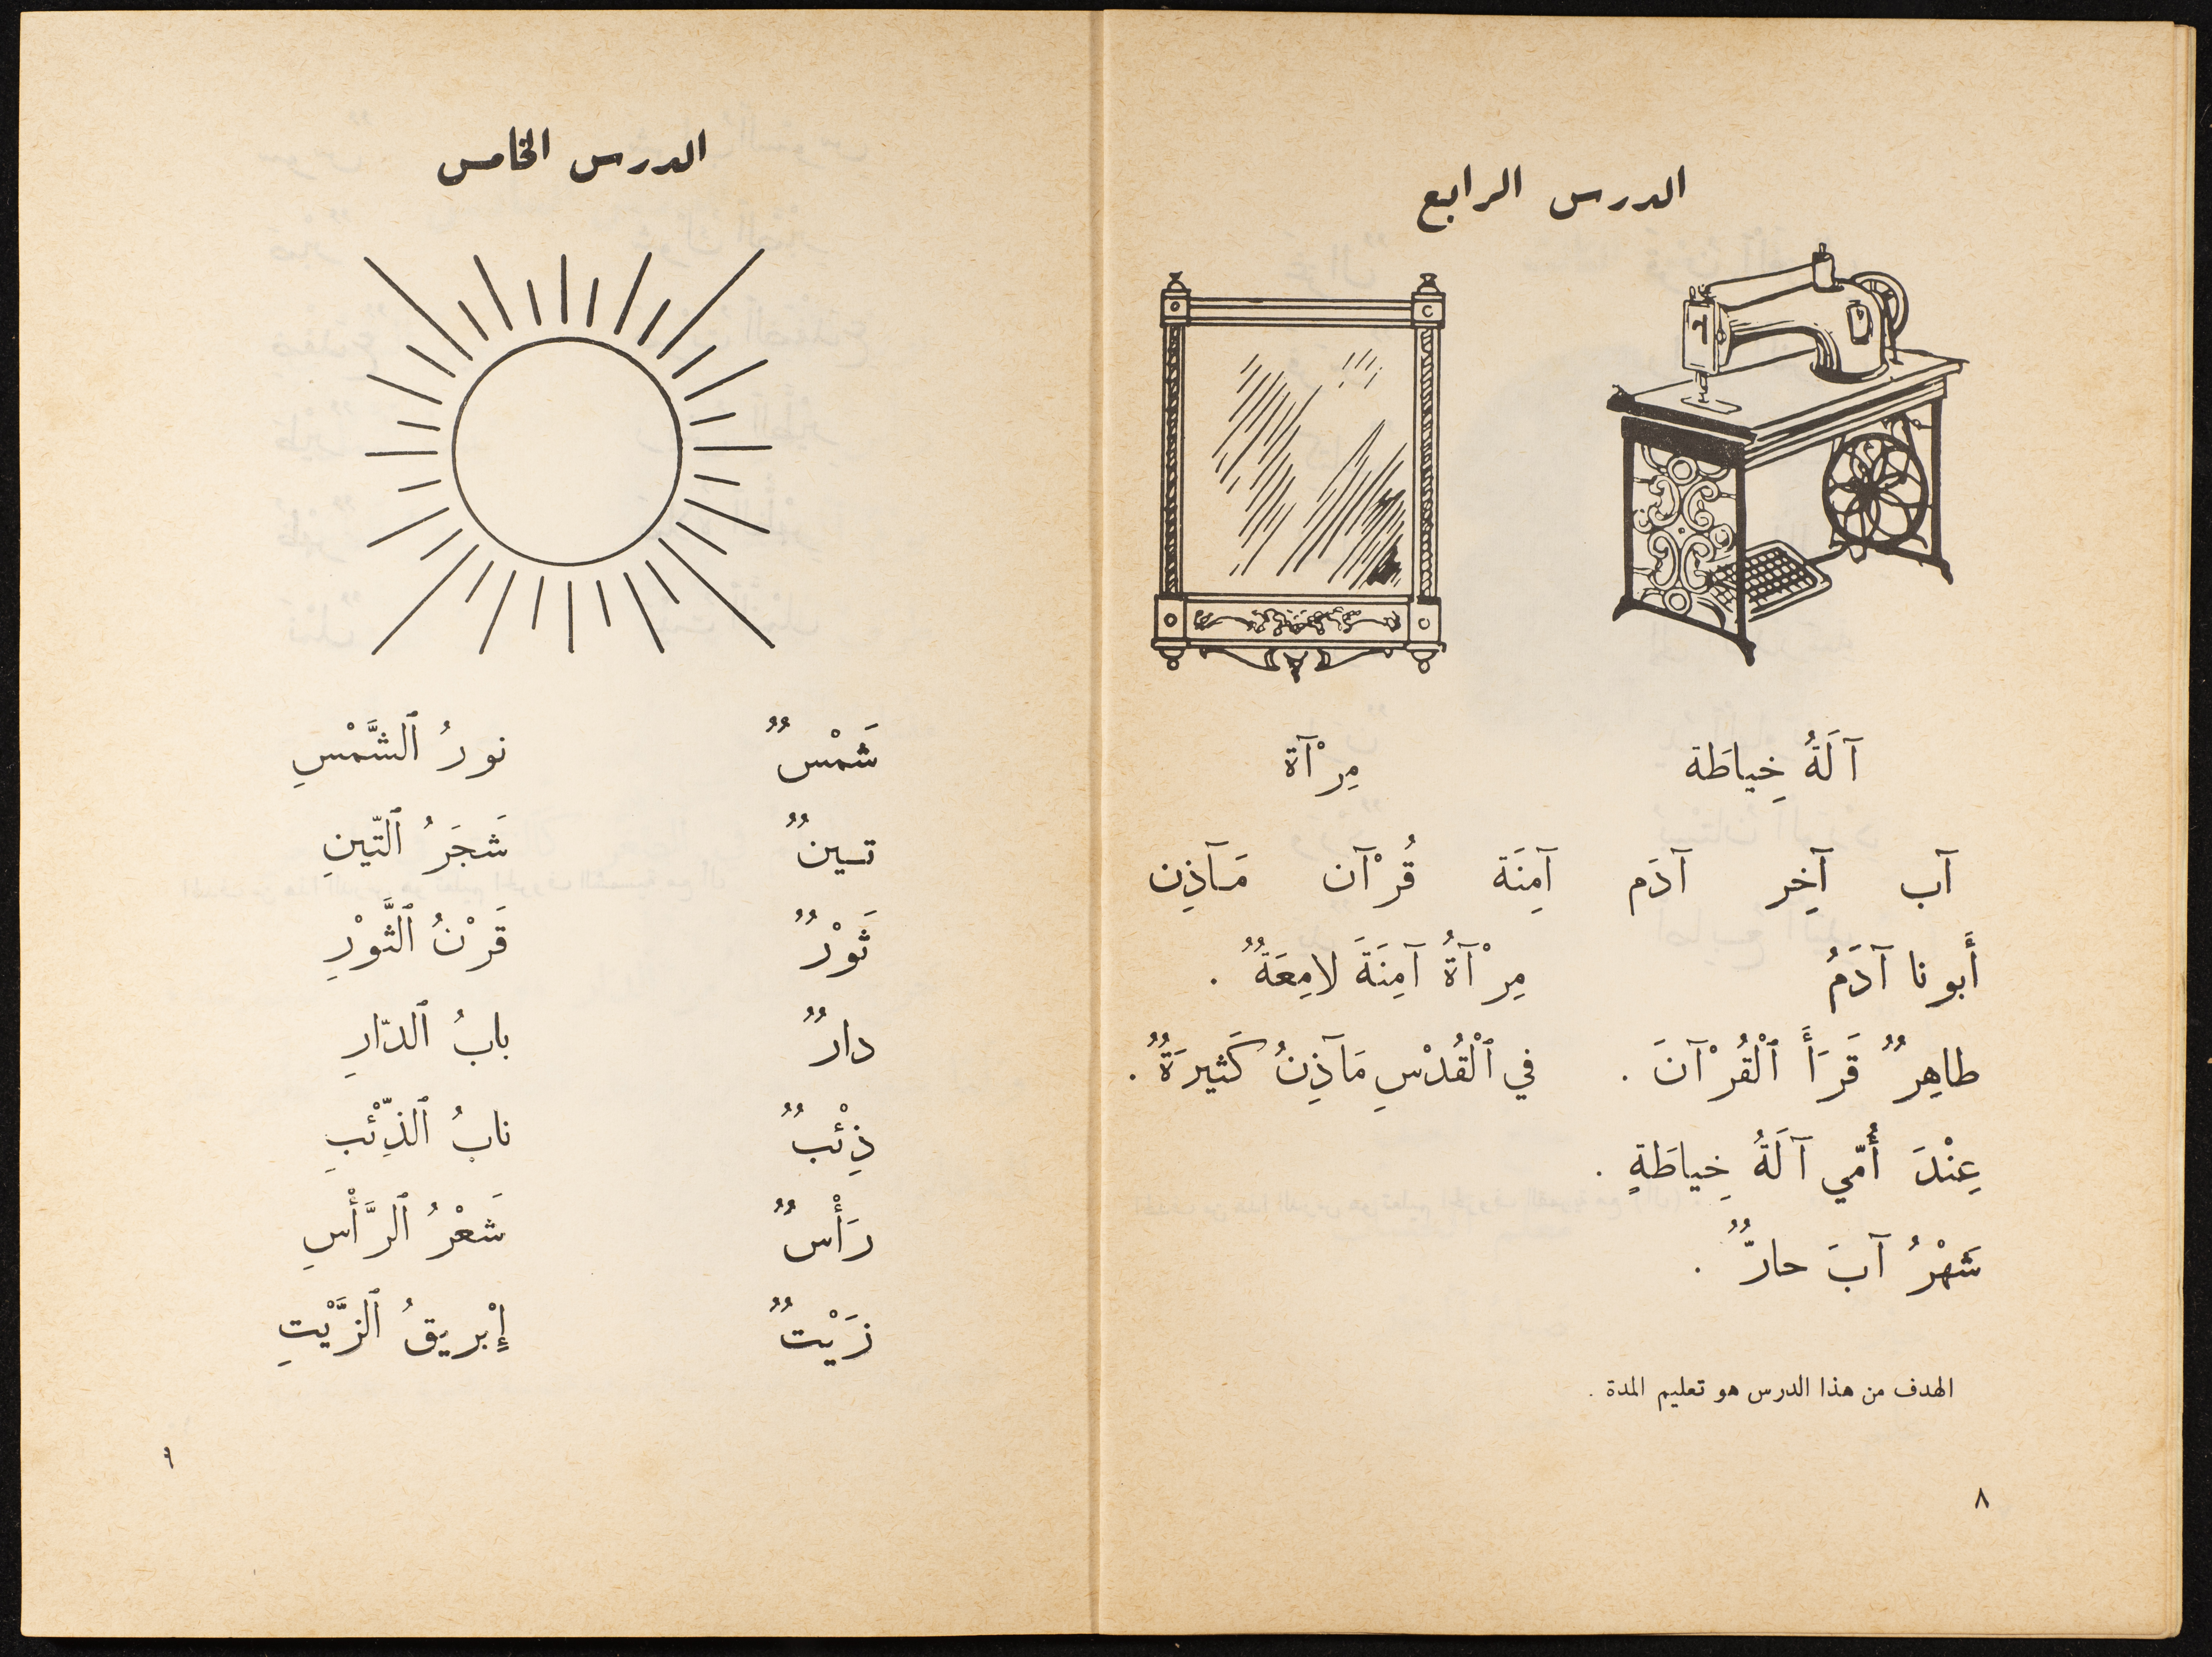 الدرس الرابع
آلَةُ خِياطَة مِرْآة
آب آخِر آدَم آمِنَة قُرْآن مَآذِن
أَبونا آدَمُ مِرْآةُ آمِنَةَ لامِعَةٌ .
طاهِرٌ قَرَأَ ٱلْقُرْآنَ . في ٱلْقُدْسِ مَآذِنُ كَثيرَةٌ .
عِنْدَ أُمّي آلَةُ خِياطَةٍ .
شَهْرُ آبَ حارٌّ .
الهدف من هذا الدرس هو تعليم المدة .
٨
الدرس الخامس
شَمْسٌ نورُ ٱلشَّمْسِ
تينٌ شَجَرُ ٱلتّينِ
ثَوْرٌ قَرْنُ ٱلثَّوْرِ
دارٌ بابُ ٱلدّارِ
ذِئْبٌ نابُ ٱلذِّئْبِ
رَأْسٌ شَعْرُ ٱلرَّأْسِ
زَيْتٌ إِبْريقُ ٱلزَّيْتِ
٩